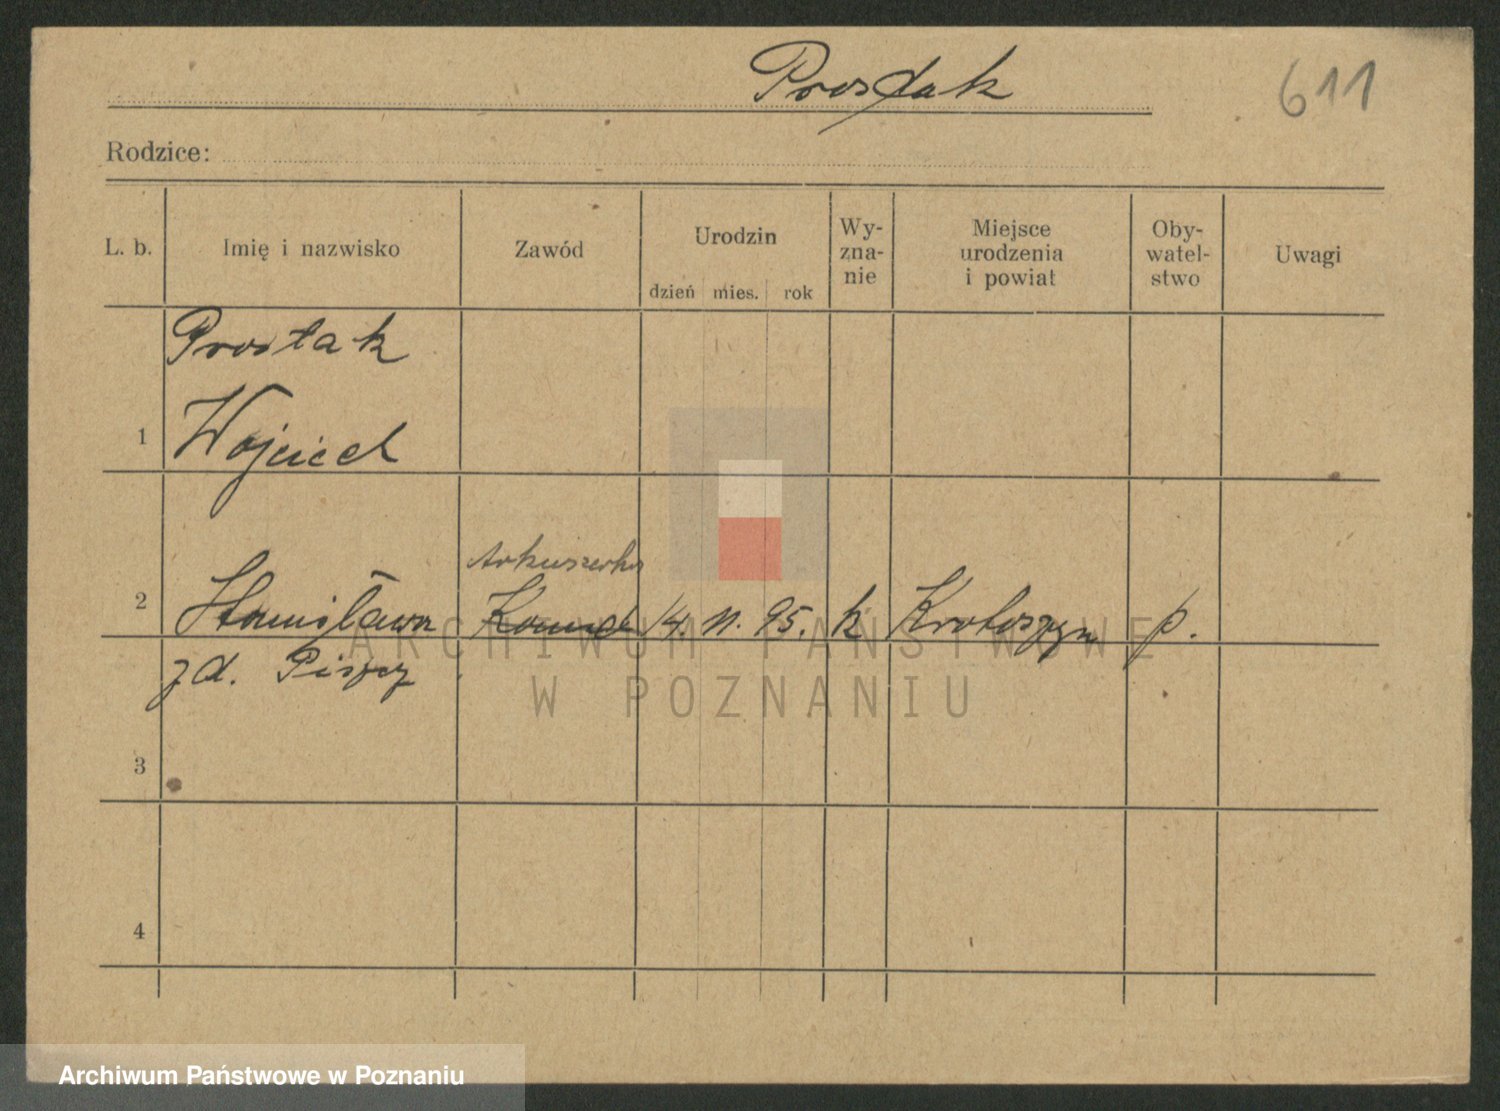 Prostak
611
Rodzice:
L. b. Imię i nazwisko Zawód Urodzin dzień mies. rok Wy-zna-nie Miejsce urodzenia i powiat Oby-watel-stwo Uwagi
Prostak
1 Wojciech
Arkuszerka
2 Stanisława 14. 11. 95. k Krotoszyn p.
zd.
3
4
ARCHIWUM PAŃSTWOWE
W POZNANIU
Archiwum Państwowe w Poznaniu